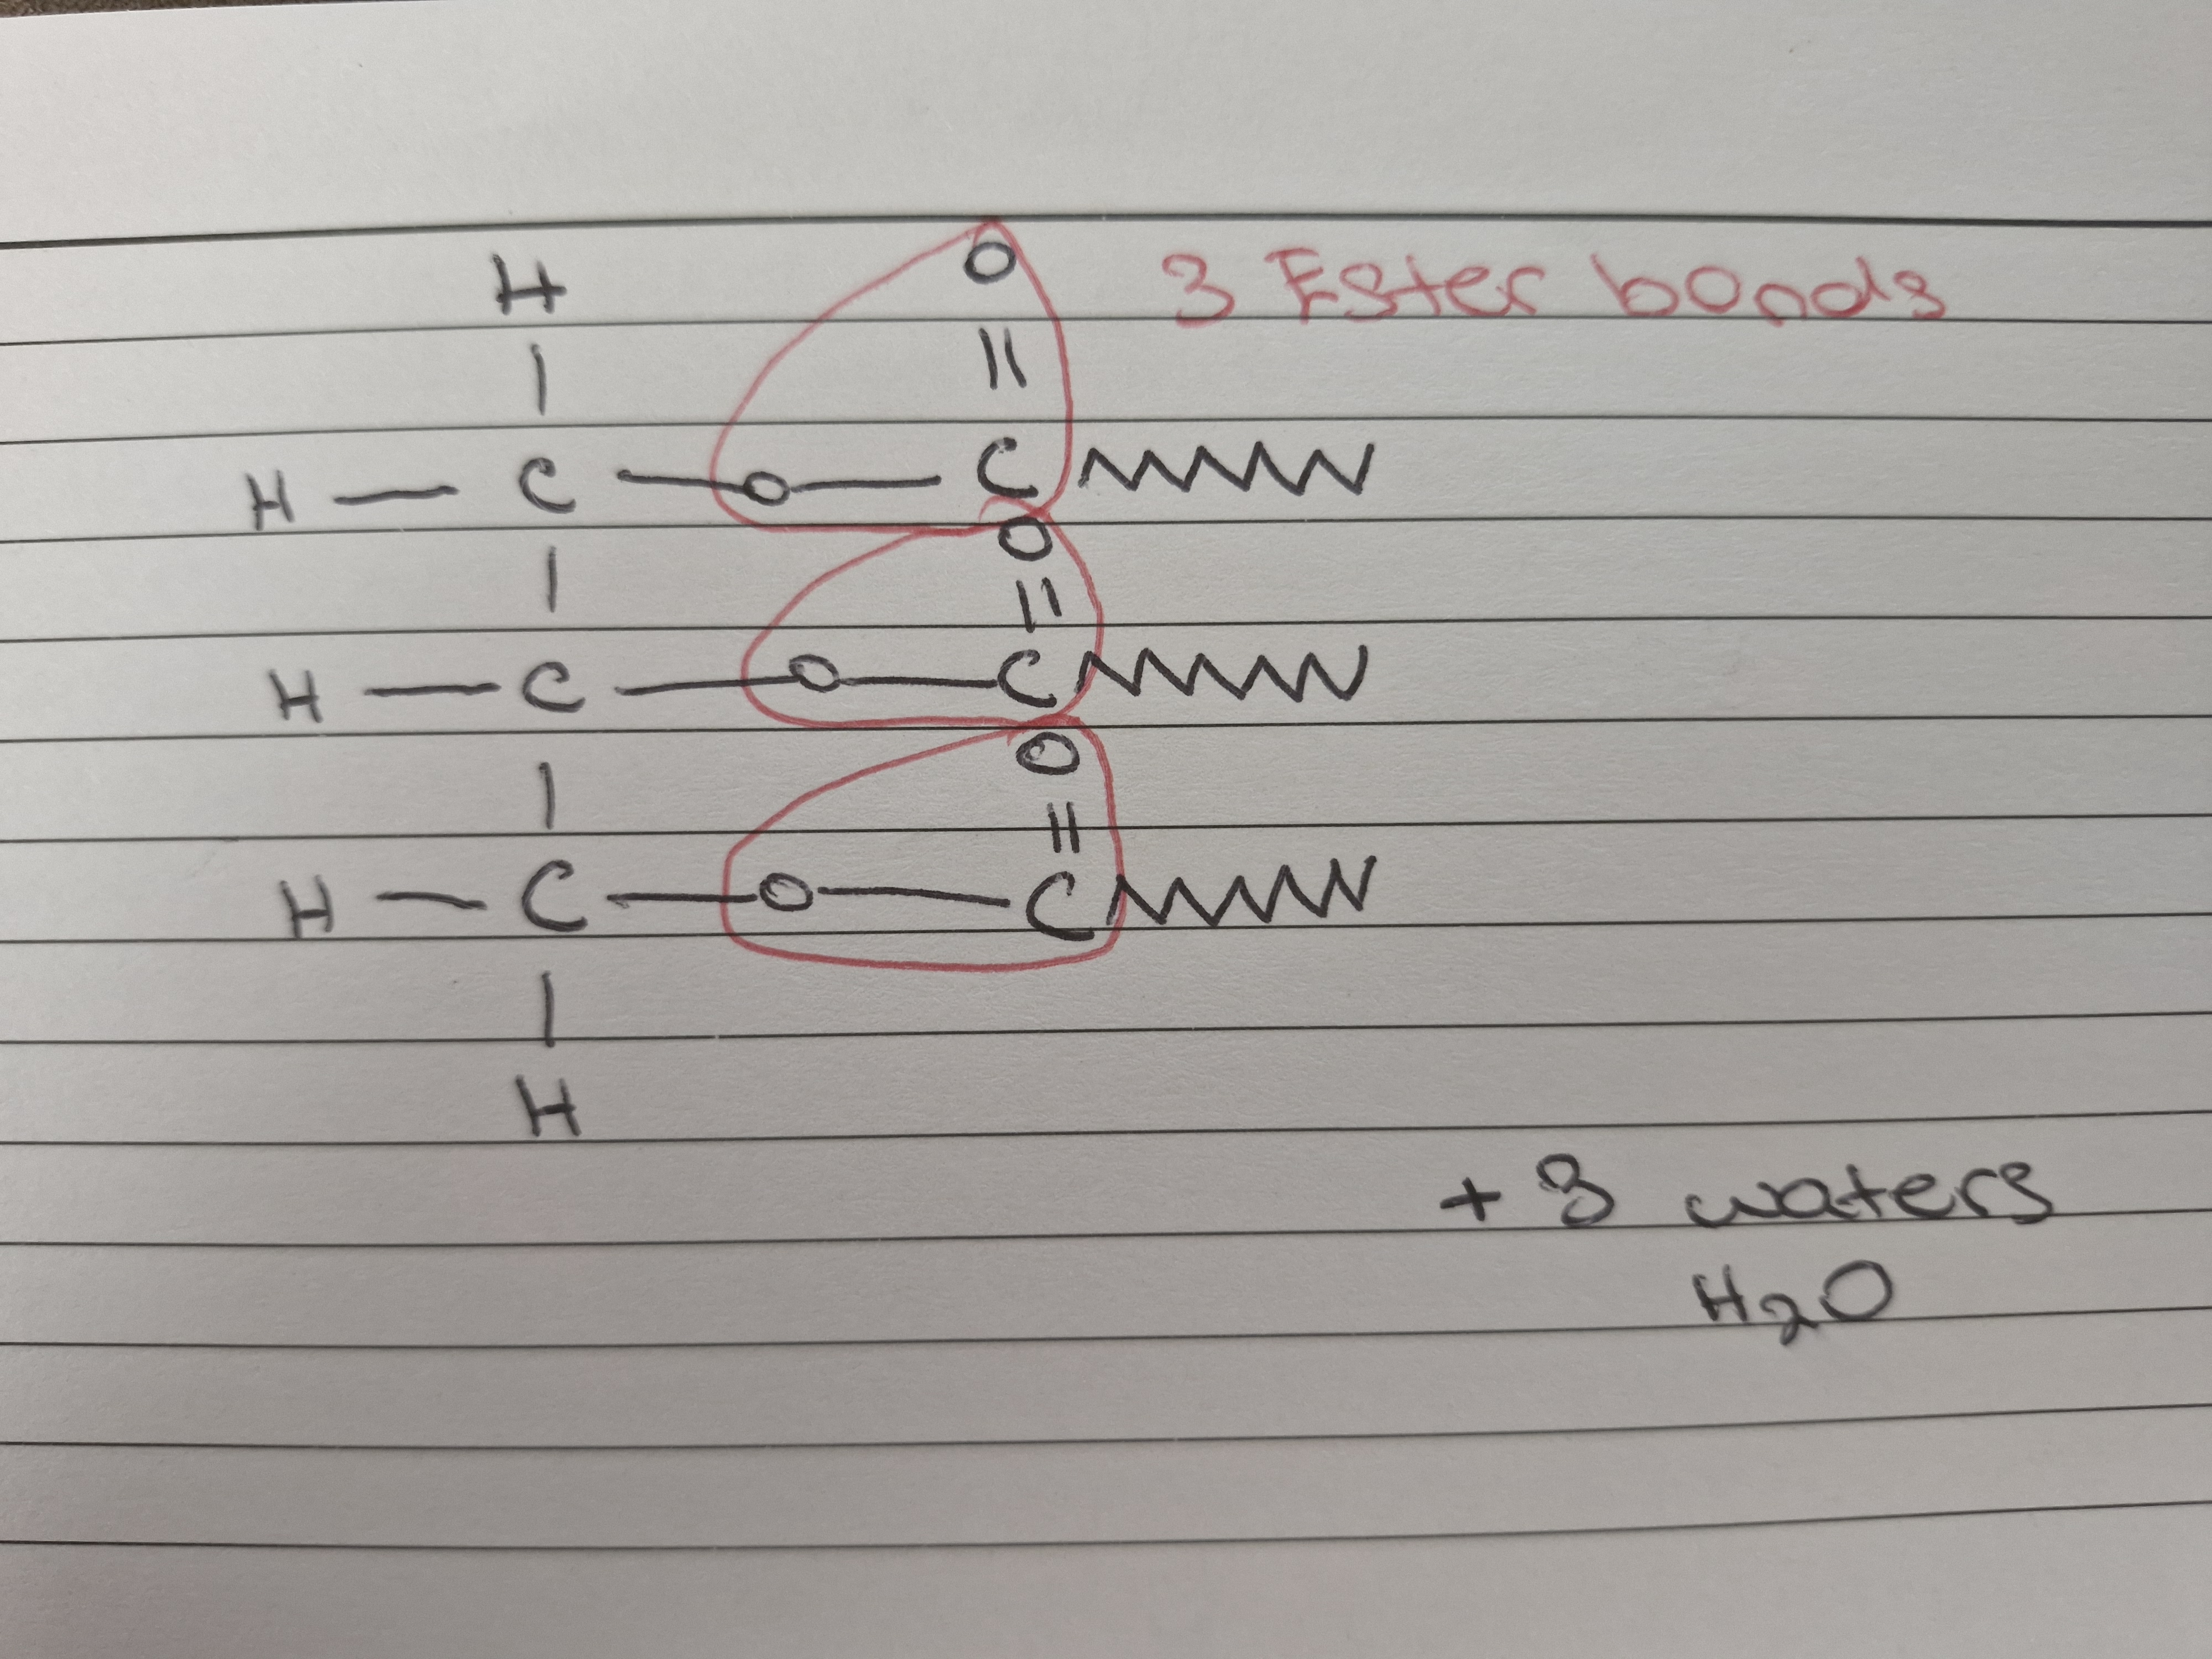 H O 3 Ester bonds
| ||
H — C — O — C
| O
||
H — C — O — C
| O
||
H — C — O — C
|
H
+ 3 waters
H2O